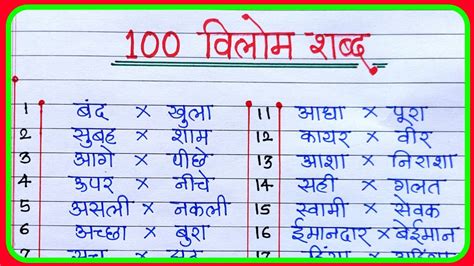 100 विलोम शब्द
1 बंद × खुला
2 सुबह × शाम
3 आगे × पीछे
4 ऊपर × नीचे
5 असली × नकली
6 अच्छा × बुरा
11 आधा × पूरा
12 कायर × वीर
13 आशा × निराशा
14 सही × गलत
15 स्वामी × सेवक
16 ईमानदार × बेईमान